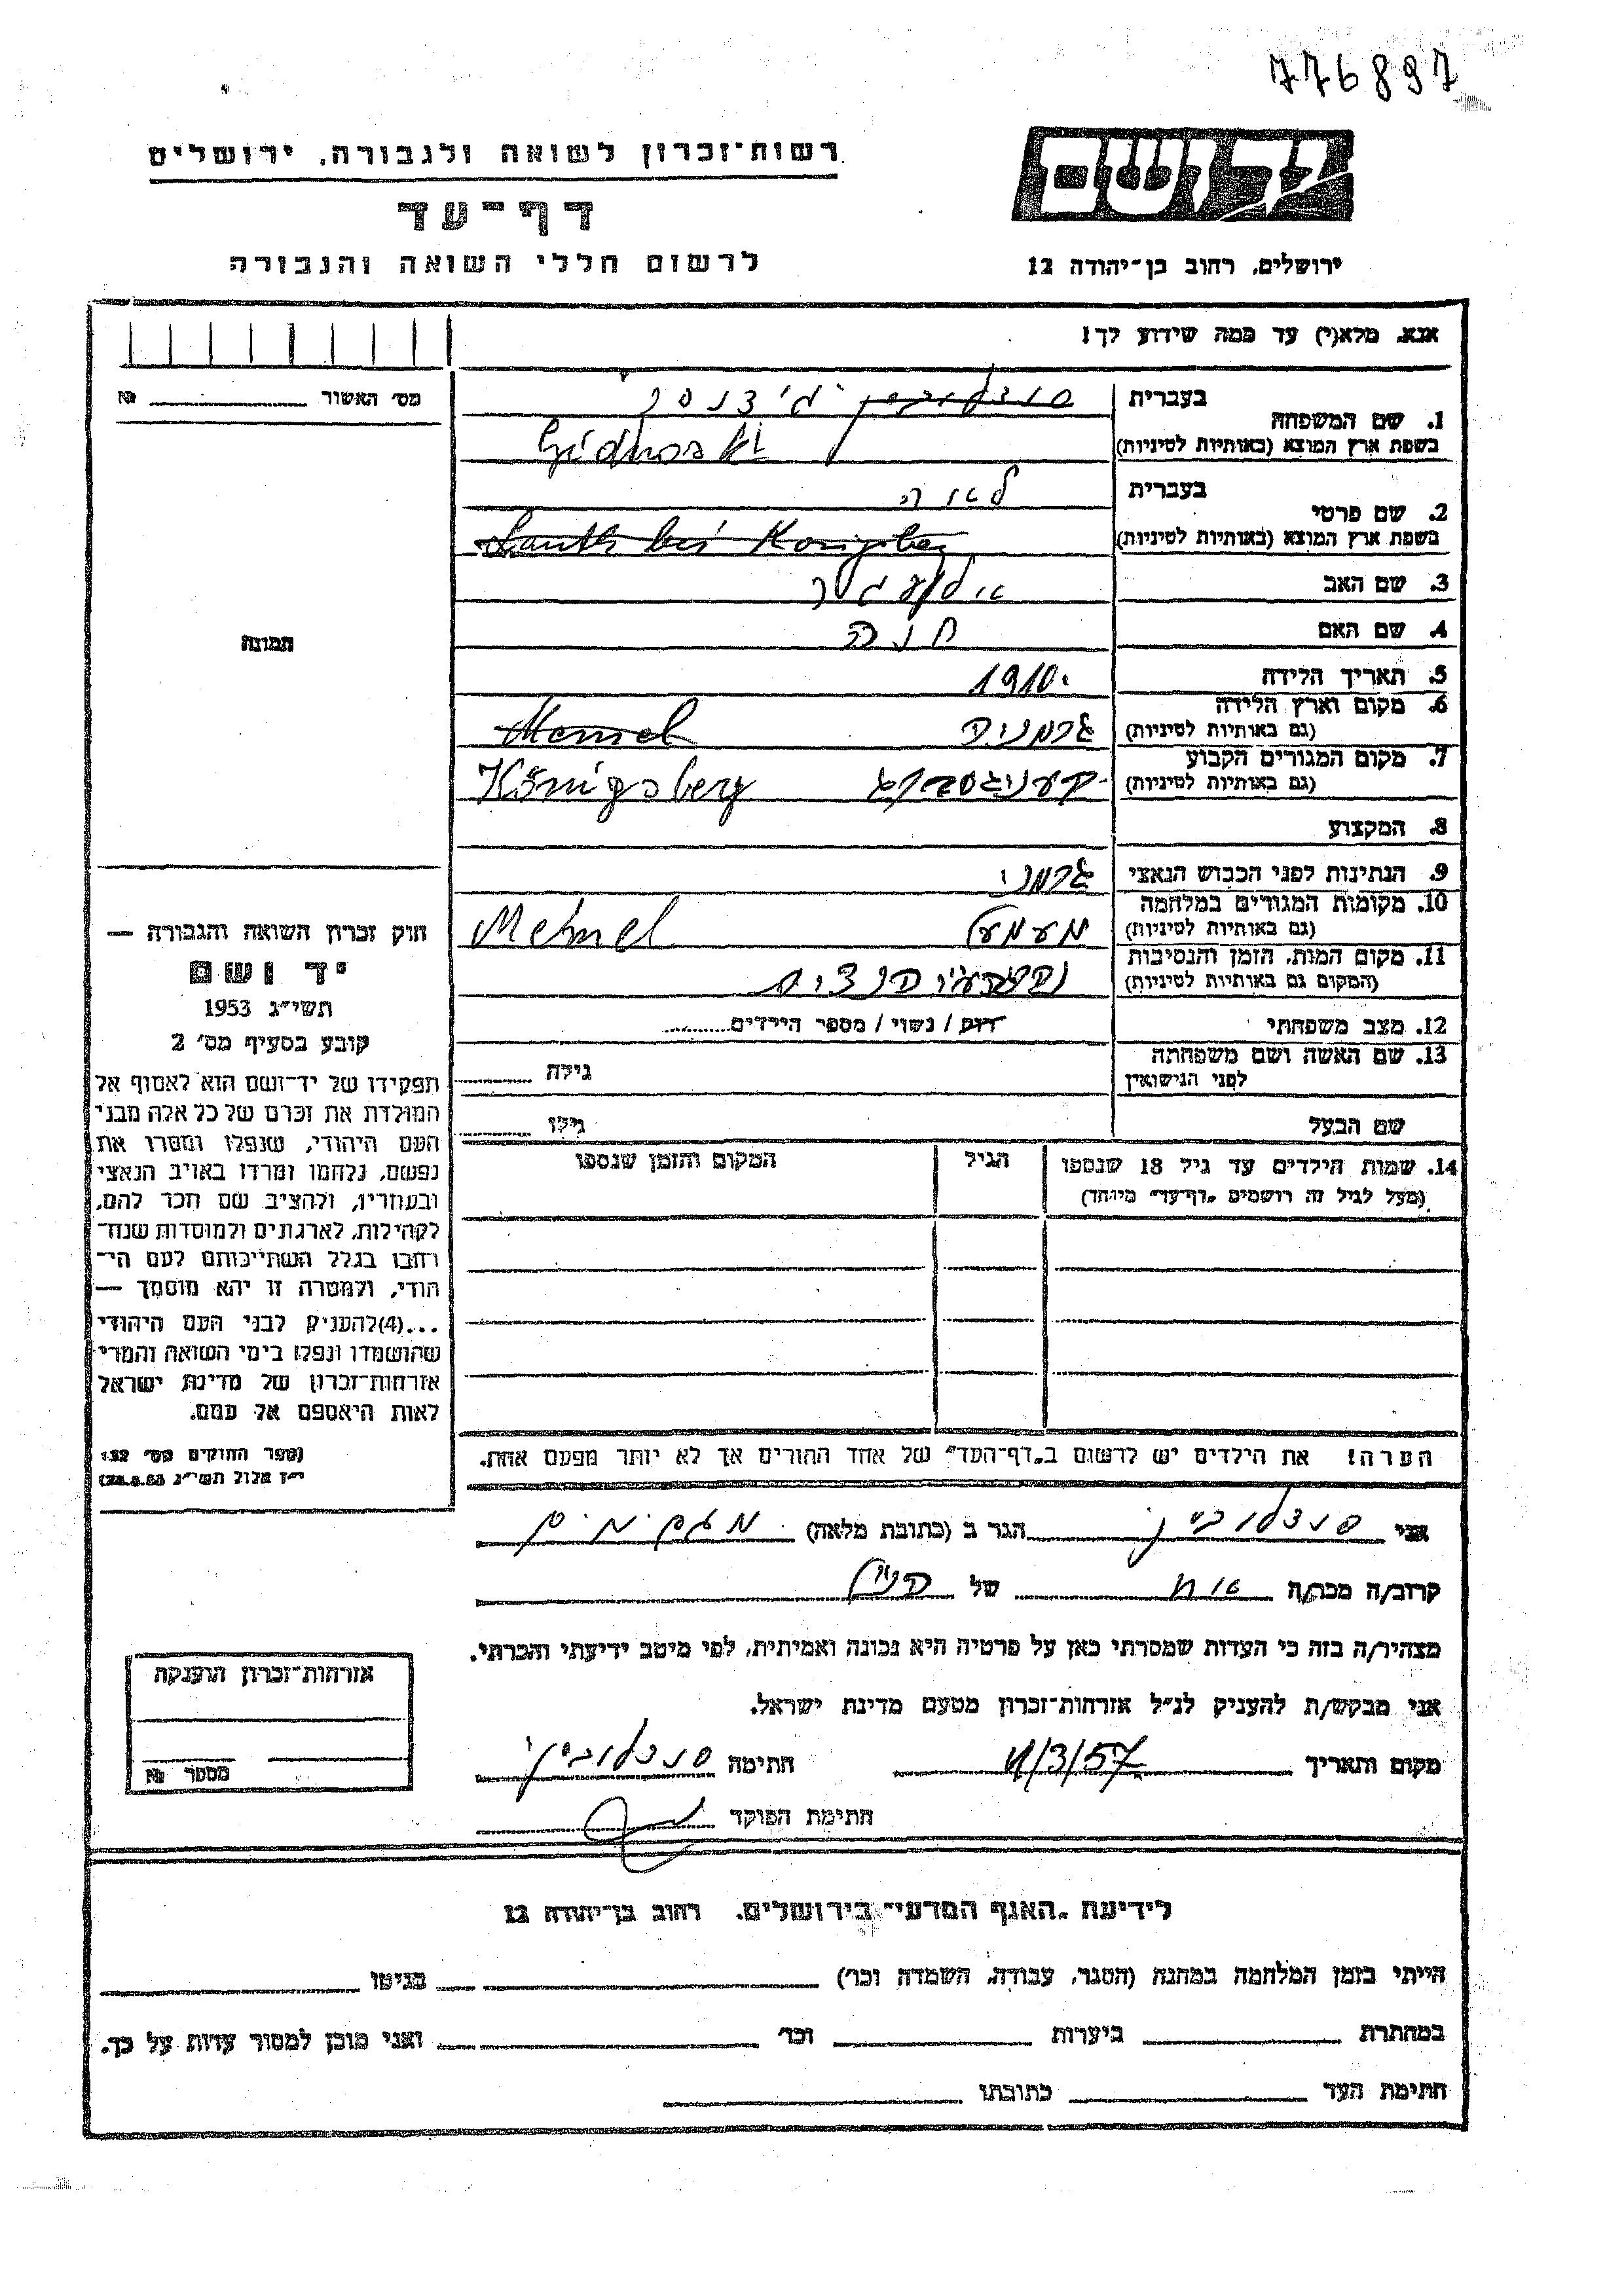 776897
רשות־זכרון לשואה ולגבורה, ירושלים
יד ושם
דף־עד
לרשום חללי השואה והגבורה
ירושלים, רחוב בן־יהודה 12
אנא, מלא(י) עד כמה שידוע לך!
מס׳ האשור № 
1. שם המשפחה
בעברית
בשפת ארץ המוצא (באותיות לטיניות)
2. שם פרטי
בעברית לאה
בשפת ארץ המוצא (באותיות לטיניות)
3. שם האב
4. שם האם חנה
5. תאריך הלידה 1910
6. מקום וארץ הלידה
(גם באותיות לטיניות) גרמניה Memel
7. מקום המגורים הקבוע
(גם באותיות לטיניות) קעניגסברג Königsberg
8. המקצוע
9. הנתינות לפני הכבוש הנאצי גרמני
10. מקומות המגורים במלחמה
(גם באותיות לטיניות) מעמעל Memel
11. מקום המות, הזמן והנסיבות
(המקום גם באותיות לטיניות)
12. מצב משפחתי רווק / נשוי / מספר הילדים
13. שם האשה ושם משפחתה
לפני הנישואין גילה
שם הבעל גילו
14. שמות הילדים עד גיל 18 שנספו
(מעל לגיל זה רושמים „דף־עד״ מיוחד)
הגיל
המקום והזמן שנספו
הערה! את הילדים יש לרשום ב„דף־העד״ של אחד ההורים אך לא יותר מפעם אחת.
תמונה
חוק זכרון השואה והגבורה —
יד ושם
תשי״ג 1953
קובע בסעיף מס׳ 2
תפקידו של יד־ושם הוא לאסוף אל
המולדת את זכרם של כל אלה מבני
העם היהודי, שנפלו ומסרו את
נפשם, נלחמו ומרדו באויב הנאצי
ובעוזריו, ולהציב שם וזכר להם,
לקהילות, לארגונים ולמוסדות שנח־
רבו בגלל השתייכותם לעם הי־
הודי, ולמטרה זו יהא מוסמך —
...(4)להעניק לבני העם היהודי
שהושמדו ונפלו בימי השואה והמרי
אזרחות־זכרון של מדינת ישראל
לאות היאספם אל עמם.
(ספר החוקים מס׳ 132
י״ז אלול תשי״ג 28.8.53)
אני הגר ב (כתובת מלאה)
קרוב/ה מכר/ה של
מצהיר/ה בזה כי העדות שמסרתי כאן על פרטיה היא נכונה ואמיתית, לפי מיטב ידיעתי והכרתי.
אני מבקש/ת להעניק לנ״ל אזרחות־זכרון מטעם מדינת ישראל.
מקום ותאריך חתימה
חתימת הפוקד
אזרחות־זכרון הוענקה
מספר №
לידיעת „האגף המדעי״ בירושלים, רחוב בן־יהודה 12
הייתי בזמן המלחמה במחנה (הסגר, עבודה, השמדה וכו׳) בגיטו
במחתרת ביערות וכו׳ ואני מוכן למסור עדות על כך.
חתימת העד כתובתו